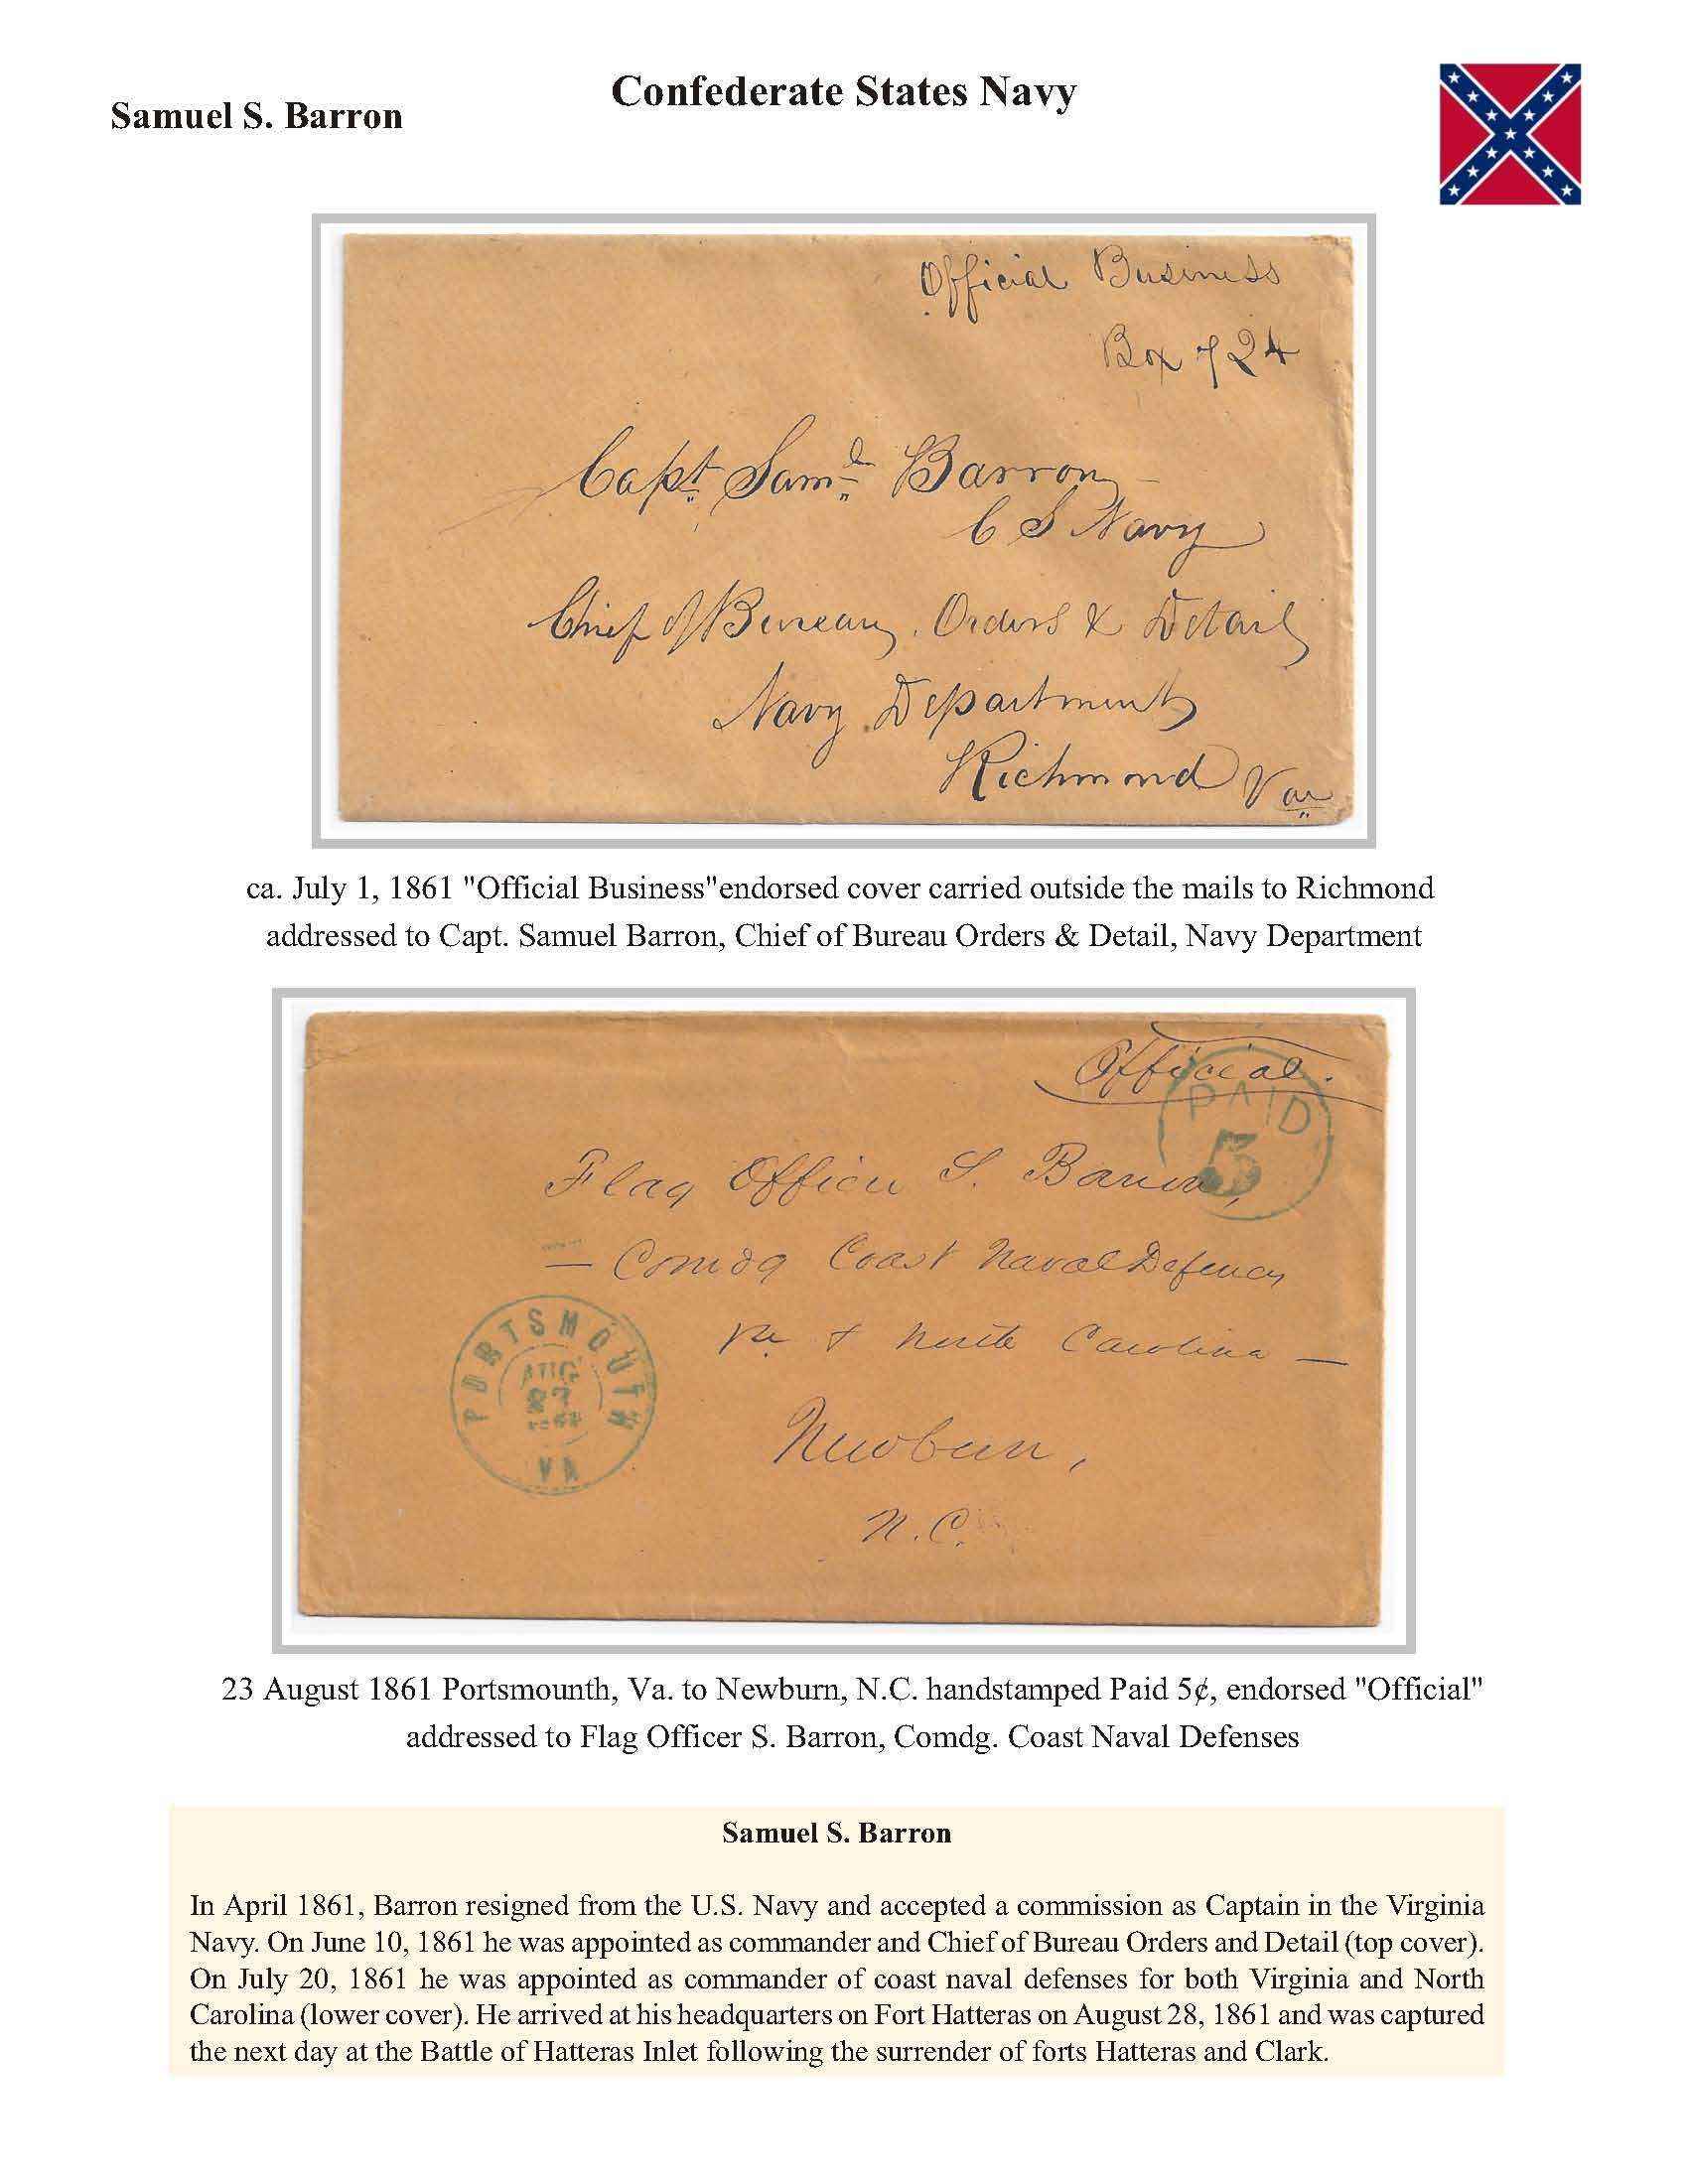 Confederate States Navy
Samuel S. Barron
Official Business
Box 724
Capt. Saml. Barron
C S Navy
Chief of Bureau, Orders & Detail
Navy Department
Richmond Va
ca. July 1, 1861 "Official Business"endorsed cover carried outside the mails to Richmond
addressed to Capt. Samuel Barron, Chief of Bureau Orders & Detail, Navy Department
Official.
PAID
5
Flag Officer S. Barron,
— Comdg Coast Naval Defences
Va. & North Carolina —
PORTSMOUTH
AUG
VA
Newbern,
N.C.
23 August 1861 Portsmounth, Va. to Newburn, N.C. handstamped Paid 5¢, endorsed "Official"
addressed to Flag Officer S. Barron, Comdg. Coast Naval Defenses
Samuel S. Barron
In April 1861, Barron resigned from the U.S. Navy and accepted a commission as Captain in the Virginia
Navy. On June 10, 1861 he was appointed as commander and Chief of Bureau Orders and Detail (top cover).
On July 20, 1861 he was appointed as commander of coast naval defenses for both Virginia and North
Carolina (lower cover). He arrived at his headquarters on Fort Hatteras on August 28, 1861 and was captured
the next day at the Battle of Hatteras Inlet following the surrender of forts Hatteras and Clark.